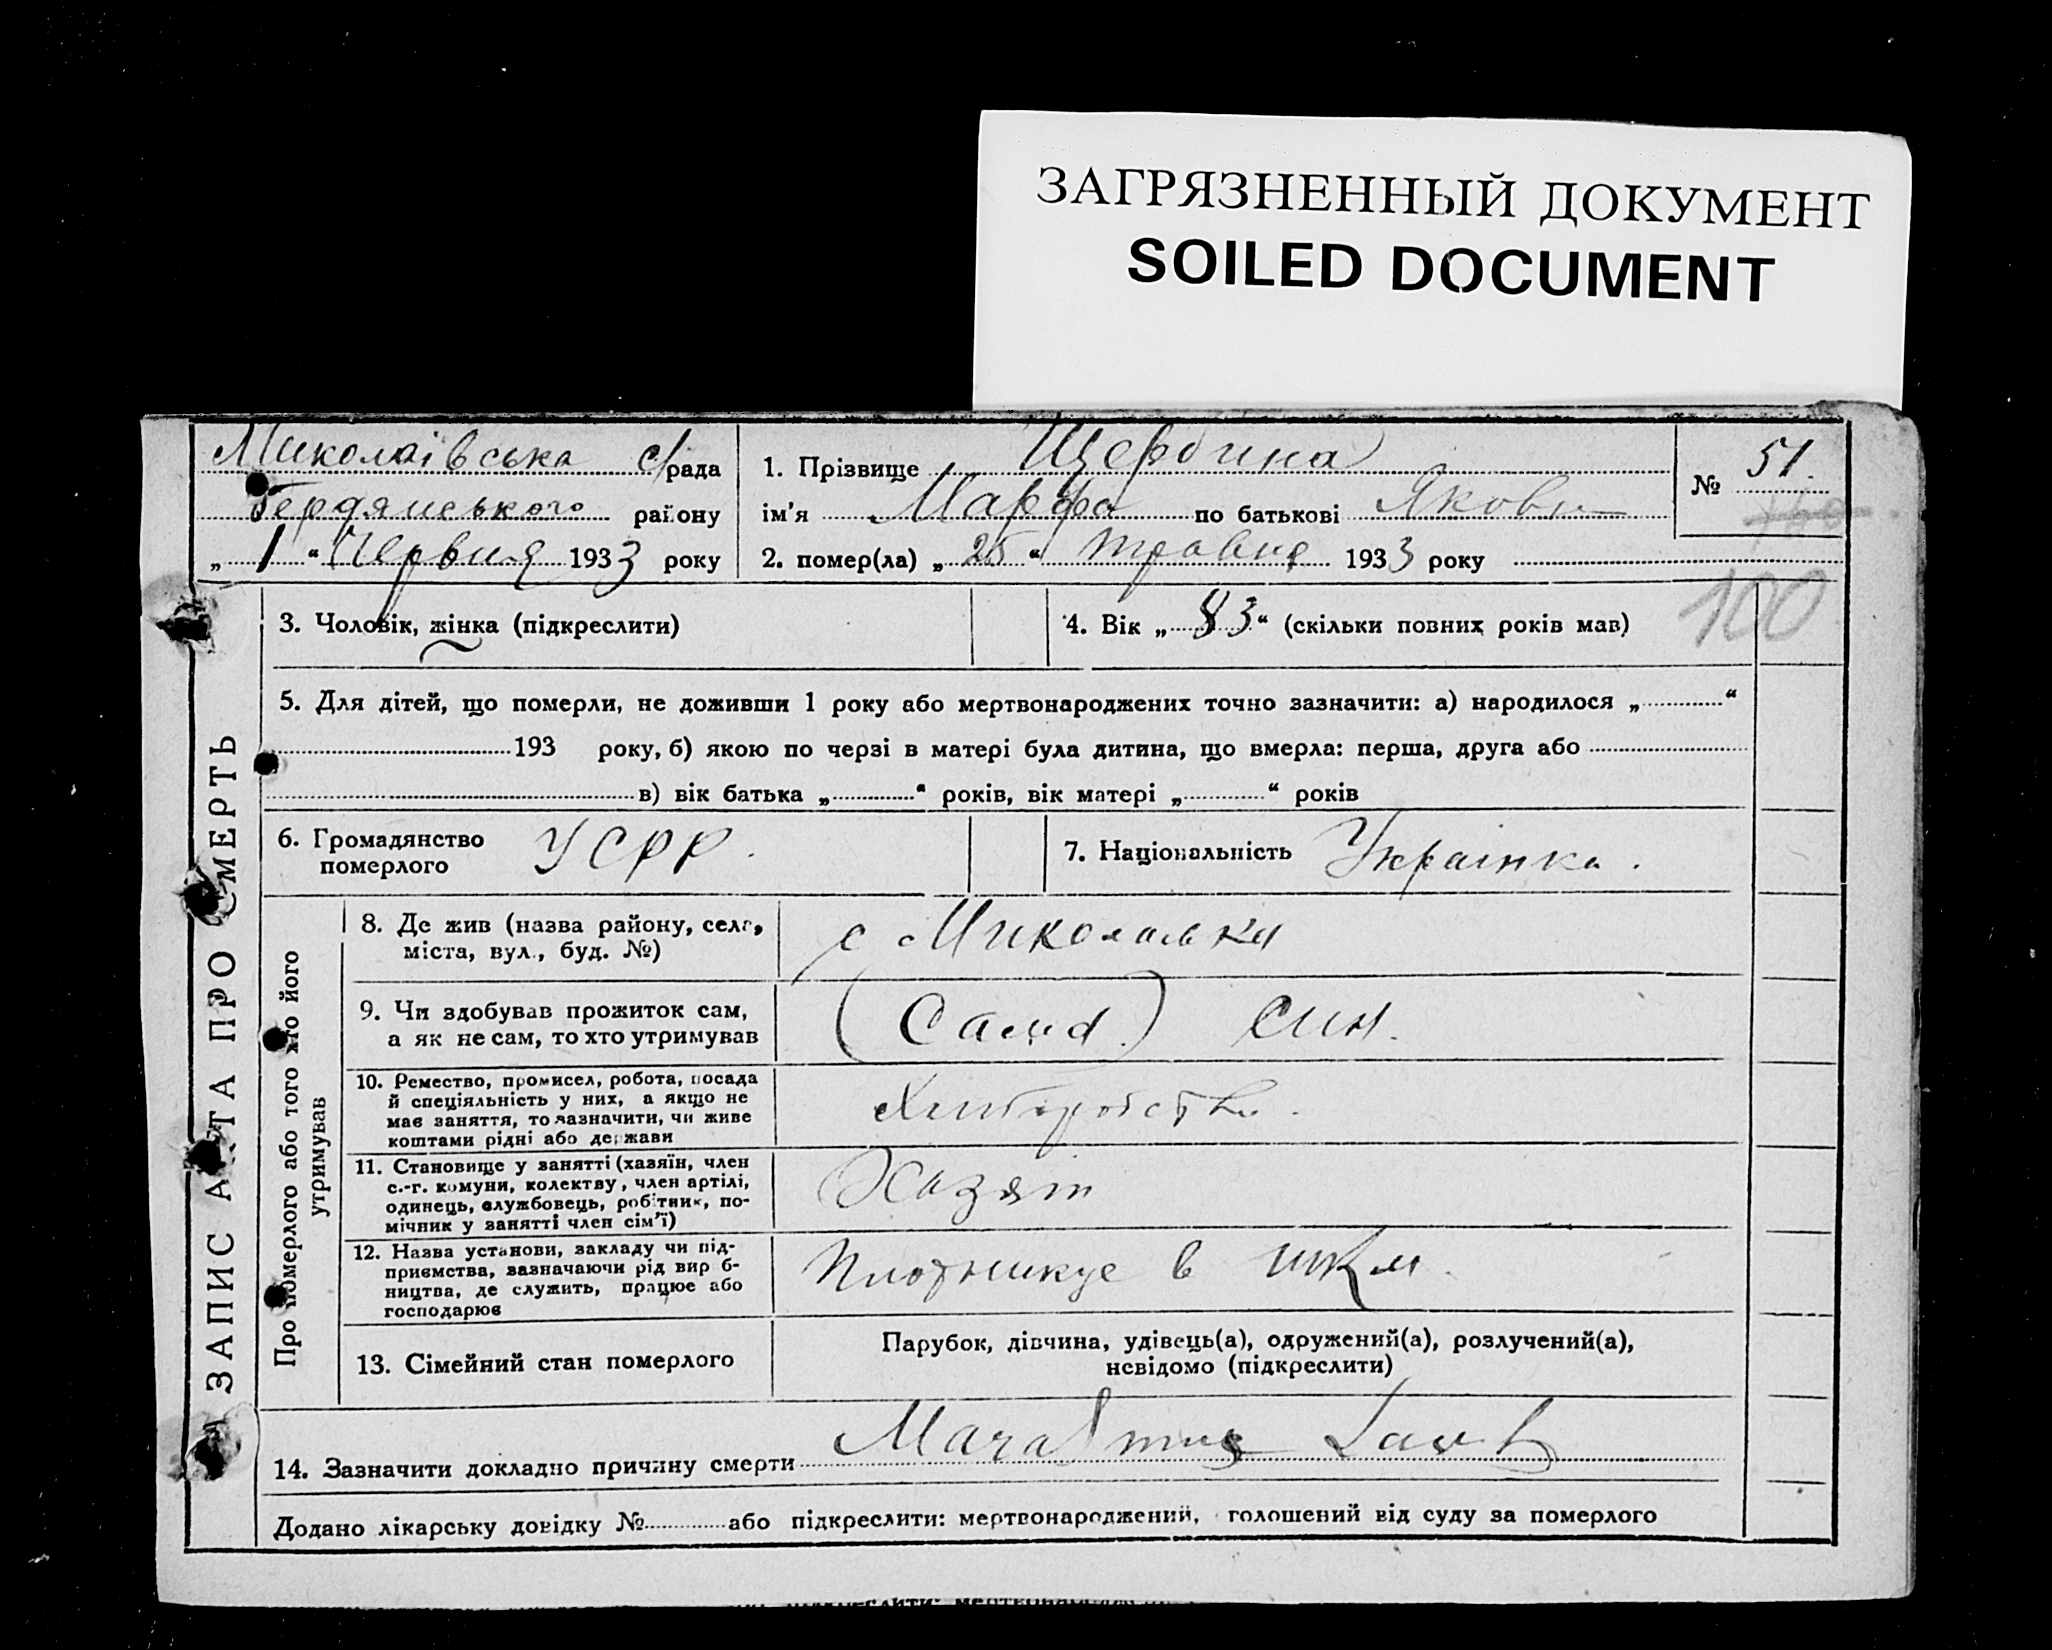 ЗАГРЯЗНЕННЫЙ ДОКУМЕНТ
SOILED DOCUMENT
Миколаївська с/рада
Бердянського району
„1“ Червня 1933 року
1. Прізвище Щербина
ім'я Марфа по батькові Яковл
2. помер(ла) „25“ травня 1933 року
№ 51.
100
3. Чоловік, жінка (підкреслити)
4. Вік „83“ (скільки повних років мав)
5. Для дітей, що померли, не доживши 1 року або мертвонароджених точно зазначити: а) народилося „ “
193 року, б) якою по черзі в матері була дитина, що вмерла: перша, друга або
в) вік батька „ “ років, вік матері „ “ років
6. Громадянство
померлого
УСРР.
7. Національність Українка.
8. Де жив (назва району, села,
міста, вул., буд. №)
с Миколаівки
9. Чи здобував прожиток сам,
а як не сам, то хто утримував
(Сама) син.
10. Ремество, промисел, робота, посада
й спеціяльність у них, а якщо не
має заняття, то зазначити, чи живе
коштами рідні або держави
11. Становище у занятті (хазяїн, член
с.-г. комуни, колективу, член артілі,
одинець, службовець, робітник, по-
мічник у занятті член сім'ї)
Хазяін
12. Назва установи, закладу чи під-
приємства, зазначаючи рід вироб-
ництва, де служить, працює або
господарює
Плотникує в
13. Сімейний стан померлого
Парубок, дівчина, удівець(а), одружений(а), розлучений(а),
невідомо (підкреслити)
14. Зазначити докладно причину смерти Marasmus
Додано лікарську довідку № або підкреслити: мертвонароджений, голошений від суду за померлого
А ЗАПИС АКТА ПРО СМЕРТЬ
Про померлого або того хто його
утримував